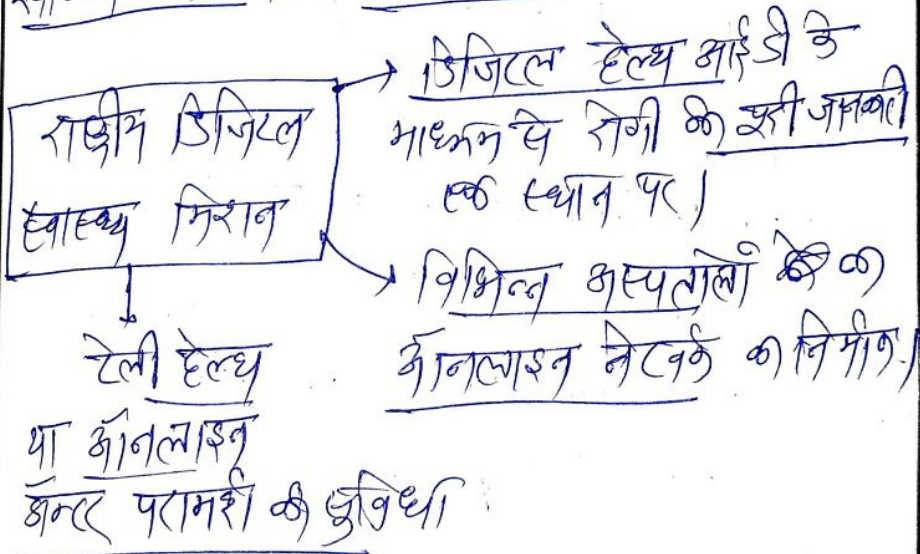 राष्ट्रीय डिजिटल
स्वास्थ्य मिशन
डिजिटल हेल्थ आईडी के
माध्यम से रोगी की पूरी जानकारी
एक स्थान पर।
विभिन्न अस्पतालों का
ऑनलाइन नेटवर्क का निर्माण।
टेली हेल्थ
या ऑनलाइन
डॉक्टर परामर्श की सुविधा